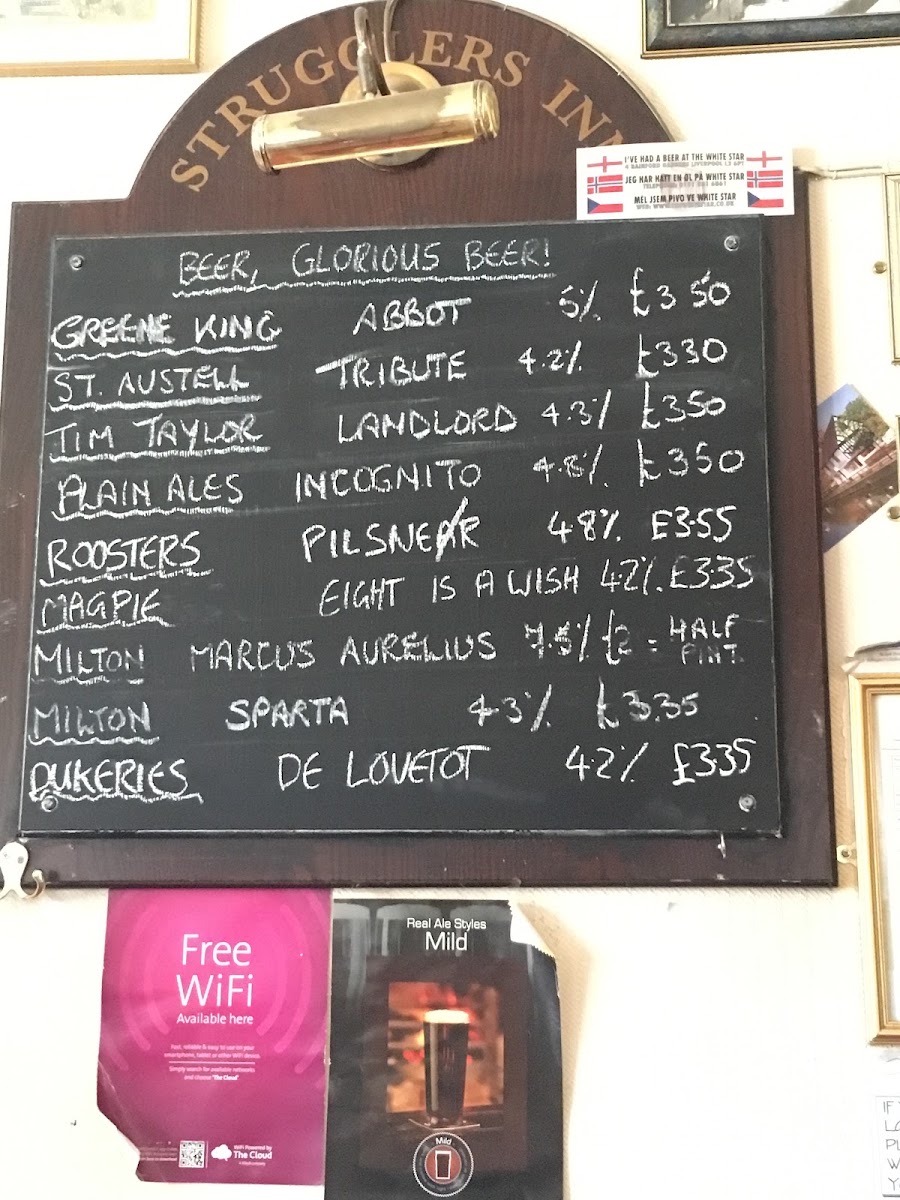 STRUGGLERS INN
I'VE HAD A BEER AT THE WHITE STAR
JEG HAR HATT EN ØL PÅ WHITE STAR
MĚL JSEM PIVO VE WHITE STAR
BEER, GLORIOUS BEER!
GREENE KING ABBOT 5% £3 50
ST. AUSTELL TRIBUTE 4.2% £330
TIM TAYLOR LANDLORD 4.3% £350
PLAIN ALES INCOGNITO 4.8% £350
ROOSTERS PILSNER 48% £3.55
MAGPIE EIGHT IS A WISH 42% £3.35
MILTON MARCUS AURELIUS 7.5% £2 = HALF PINT
MILTON SPARTA 43% £3.35
DUKERIES DE LOVETOT 42% £335
Free
WiFi
Available here
Fast, reliable & easy to use on your
smartphone, tablet or other WiFi device.
Simply search for available networks
and choose 'The Cloud'
WiFi Powered by
The Cloud
Real Ale Styles
Mild
Mild